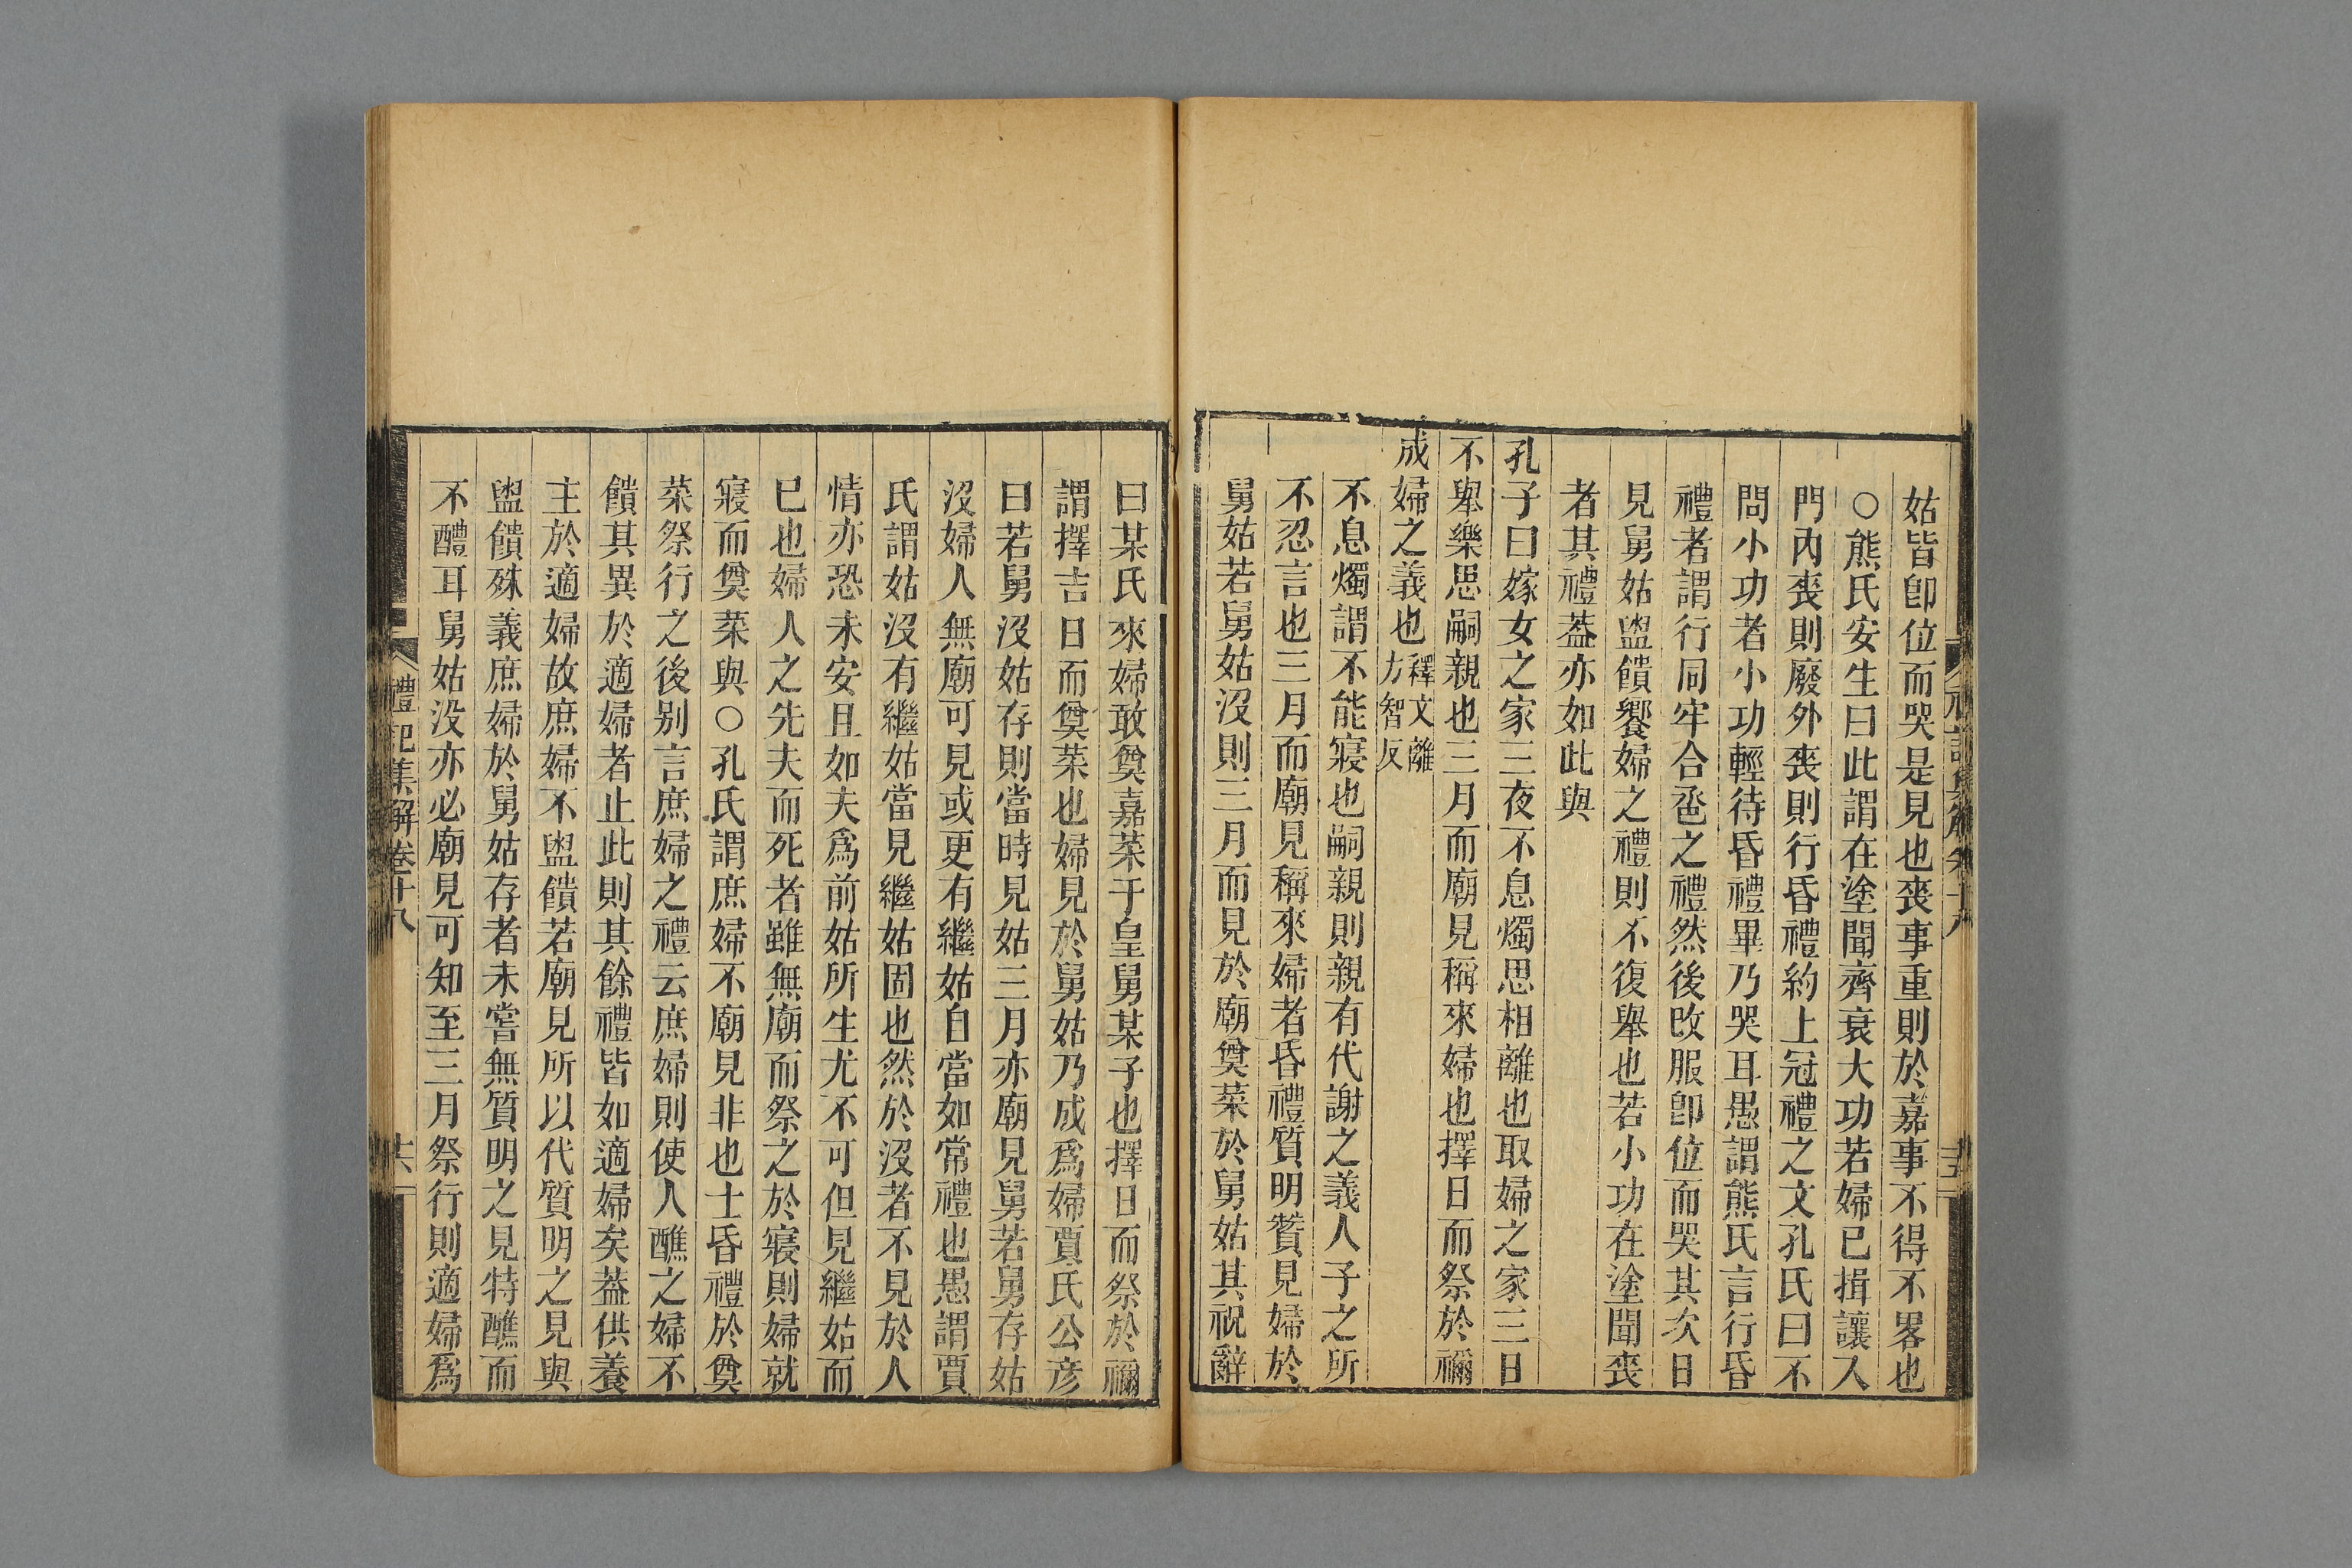 姑皆卽位而哭是見也喪事重則於嘉事不得不畧也
○熊氏安生曰此謂在塗聞齊衰大功若婦已揖讓入
門內喪則廢外喪則行昏禮約上冠禮之文孔氏曰不
問小功者小功輕待昏禮畢乃哭耳愚謂熊氏言行昏
禮者謂行同牢合巹之禮然後改服卽位而哭其次日
見舅姑盥饋饗婦之禮則不復舉也若小功在塗聞喪
者其禮葢亦如此與
孔子曰嫁女之家三夜不息燭思相離也取婦之家三日
不舉樂思嗣親也三月而廟見稱來婦也擇日而祭於禰
成婦之義也釋文離方智反
不息燭謂不能寢也嗣親則親有代謝之義人子之所
不忍言也三月而廟見稱來婦者昏禮質明贊見婦於
舅姑若舅姑沒則三月而見於廟奠菜於舅姑其祝辭
曰某氏來婦敢奠嘉菜于皇舅某子也擇日而祭於禰
謂擇吉日而奠菜也婦見於舅姑乃成爲婦賈氏公彦
曰若舅沒姑存則當時見姑三月亦廟見舅若舅存姑
沒婦人無廟可見或更有繼姑自當如常禮也愚謂賈
氏謂姑沒有繼姑當見繼姑固也然於沒者不見於人
情亦恐未安且如夫爲前姑所生尤不可但見繼姑而
已也婦人之先夫而死者雖無廟而祭之於寢則婦就
寢而奠菜與○孔氏謂庶婦不廟見非也士昏禮於奠
菜祭行之後别言庶婦之禮云庶婦則使人醮之婦不
饋其異於適婦者止此則其餘禮皆如適婦矣葢供養
主於適婦故庶婦不盥饋若廟見所以代質明之見與
盥饋殊義庶婦於舅姑存者未嘗無質明之見特醮而
不醴耳舅姑没亦必廟見可知至三月祭行則適婦爲
禮記集解卷十八